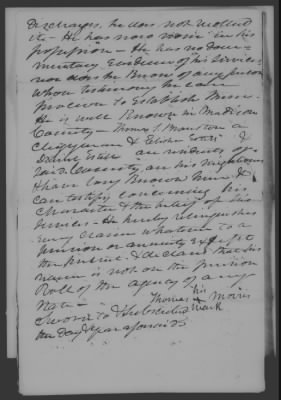 discharges, he does not recollect
it - He has now none in his
possession - He has no docu-
mentary evidence of his services
nor does he know of any person
whose testimony he can
procure to establish them -
He is well known in Madison
County - Thomas S. Bronston a
Clergyman & 
Daniel are residents of
said County, in his neighborhood
& have long known him &
can testify concerning his
character & the belief of his
services - He hereby relinquishes
every claim whatever to a
pension or annuity except
the present & declares that his
name is not on the pension
Roll of the agency of any
State -
Thomas his Morris
Sworn to & Subscribed mark
the day & year aforesaid.